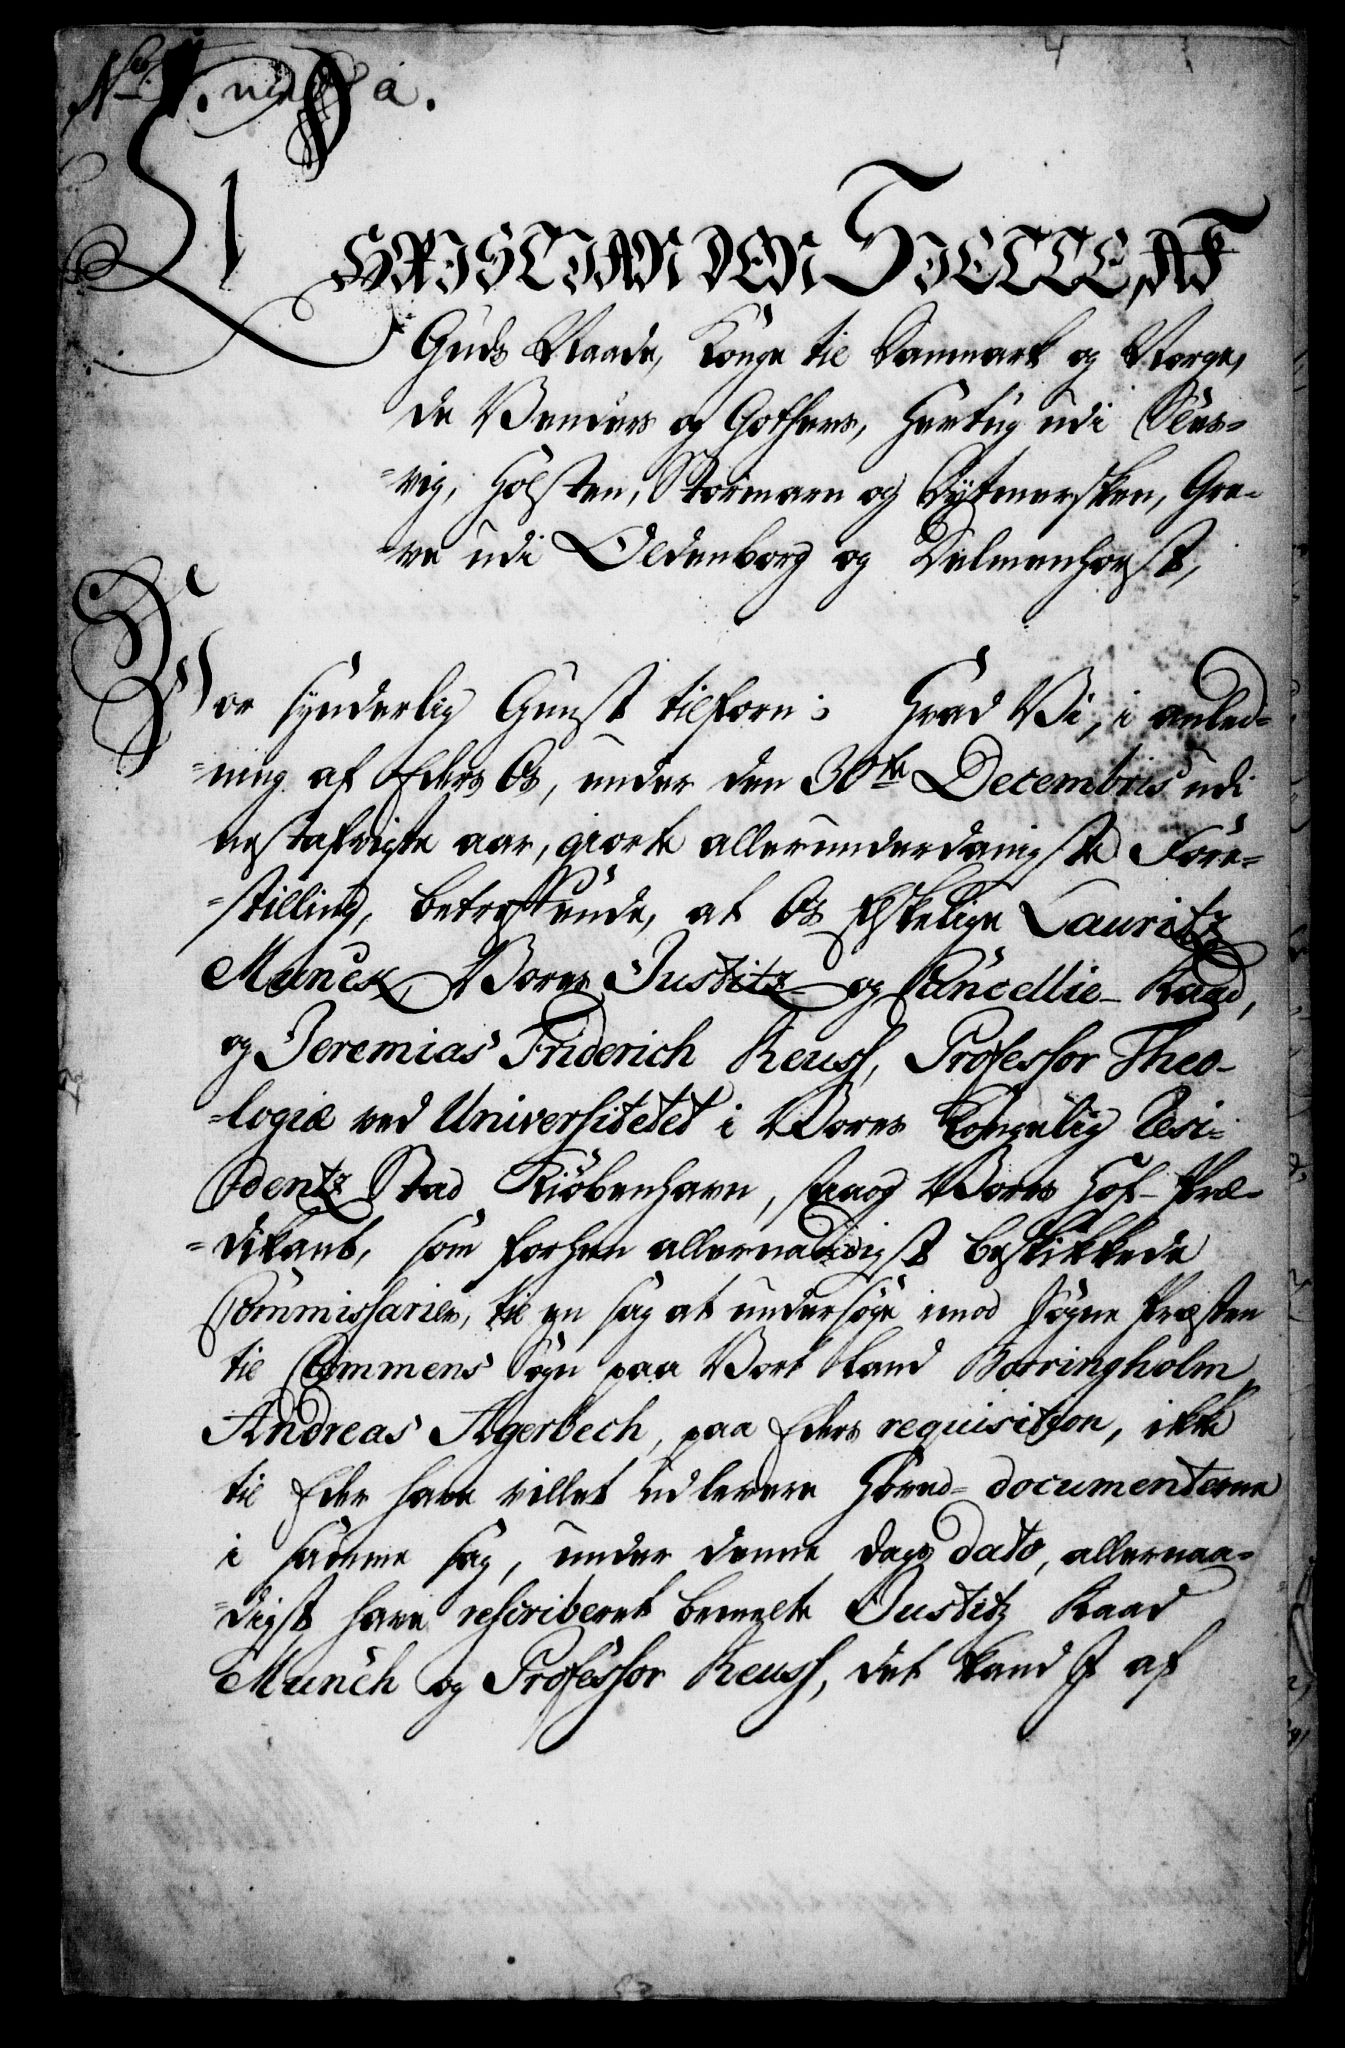 CHRISTIAN DEN SIETTE, AF
Guds Naade, Konge til Danmark og Norge,
de Venders og Gothers, Hertug udi Sles-
-vig, Holsten, Stormarn og Dytmersken, Gre-
-ve udi Oldenborg og Delmenhorst,
Vor synderlig Gunst tilforn; Hvad Vi, i anled-
-ning af Eders Os, under den 30te Decembris udi
nestafvigte aar, giorte allerunderdanigste Fore-
-stilling, betreffende, at Os Elskelige Lauritz
Munck, Vores Justitz- og Cancellie-Raad,
og Jeremias Friderich Reuss, Professor Theo-
-logiæ ved Universitetet i Vores Kongelig Resi-
dentz Stad Kiöbenhavn, saaog Vores Hof-Præ-
-dikant, som forhen allernaadigst beskikkede
Commissarier, til en sag at undersöge imod Sogne Præsten
til Clemmens Sogn paa Vort Land Borringholm,
Andreas Agerbech, paa Eders requisition, ikke
til Eder have villet udlevere Hoved-documenterne
i samme sag, under denne dags dato, allernaa-
-digst have rescriberet bemelte Justitz Raad
Munch og Professor Reuss, det kand I af